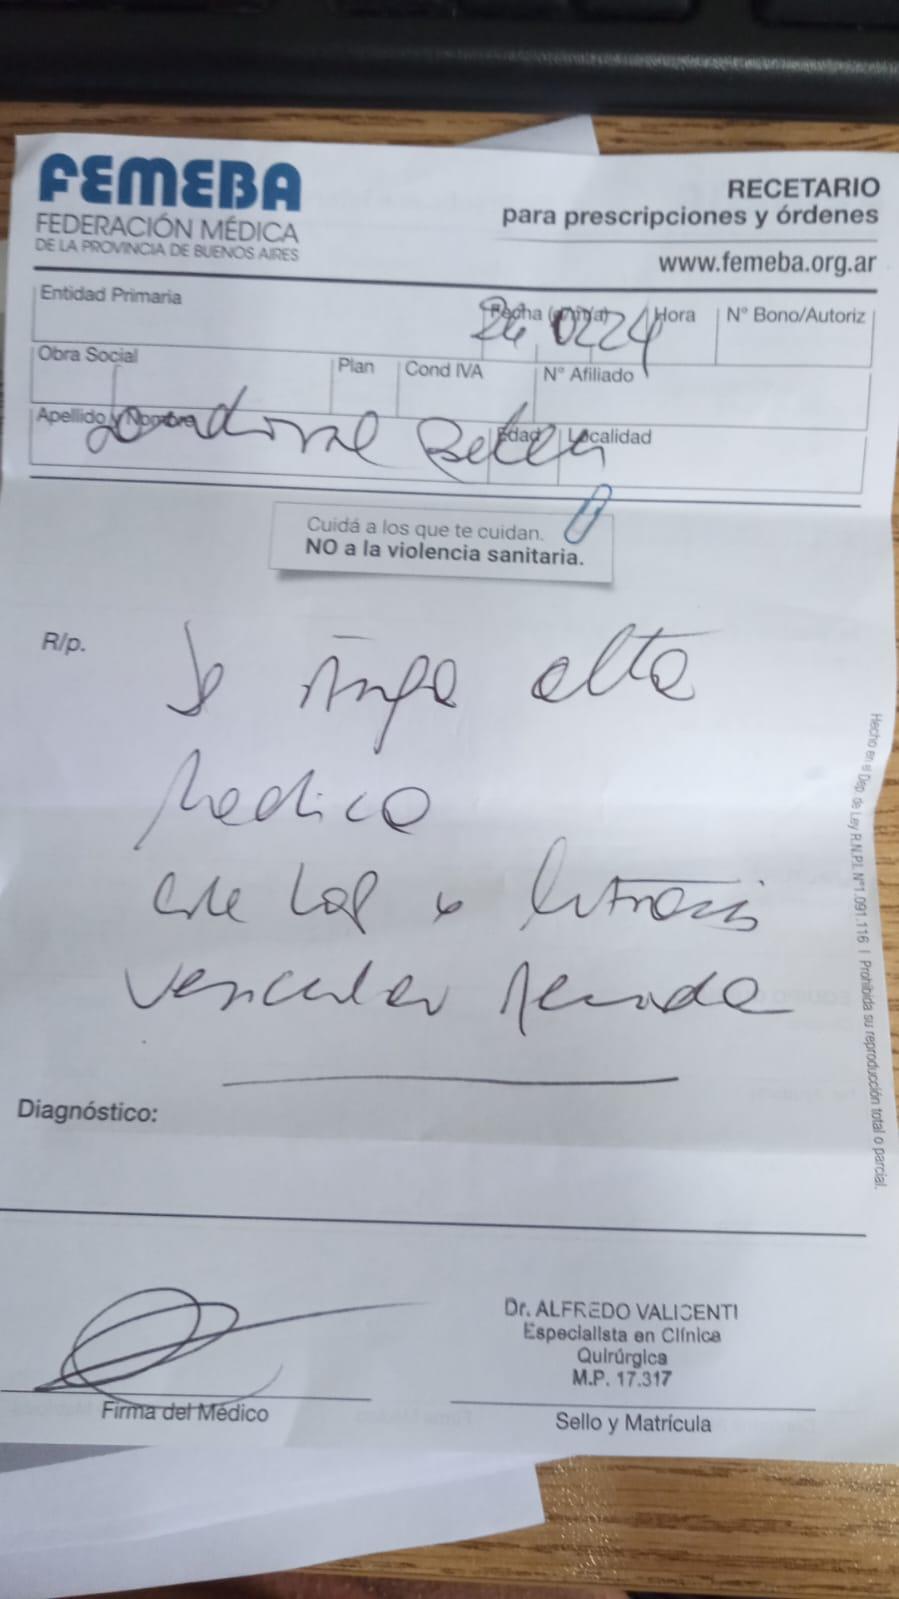 FEMEBA
FEDERACIÓN MÉDICA
DE LA PROVINCIA DE BUENOS AIRES
RECETARIO
para prescripciones y órdenes
www.femeba.org.ar
Entidad Primaria
Fecha Hora
N° Bono/Autoriz
26 02 24
Obra Social
Plan
Cond IVA
N° Afiliado
Apellido y Nombre
Edad
Localidad
Sandoval Belen
Cuidá a los que te cuidan.
NO a la violencia sanitaria.
R/p.
alta
Medica
x Litiasis
vesicular
Diagnóstico:
Firma del Médico
Dr. ALFREDO VALICENTI
Especialista en Clínica
Quirúrgica
M.P. 17.317
Sello y Matrícula
Hecho en el Dep. de Ley R.N.P.I. N°1.091.116 | Prohibida su reproducción total o parcial.